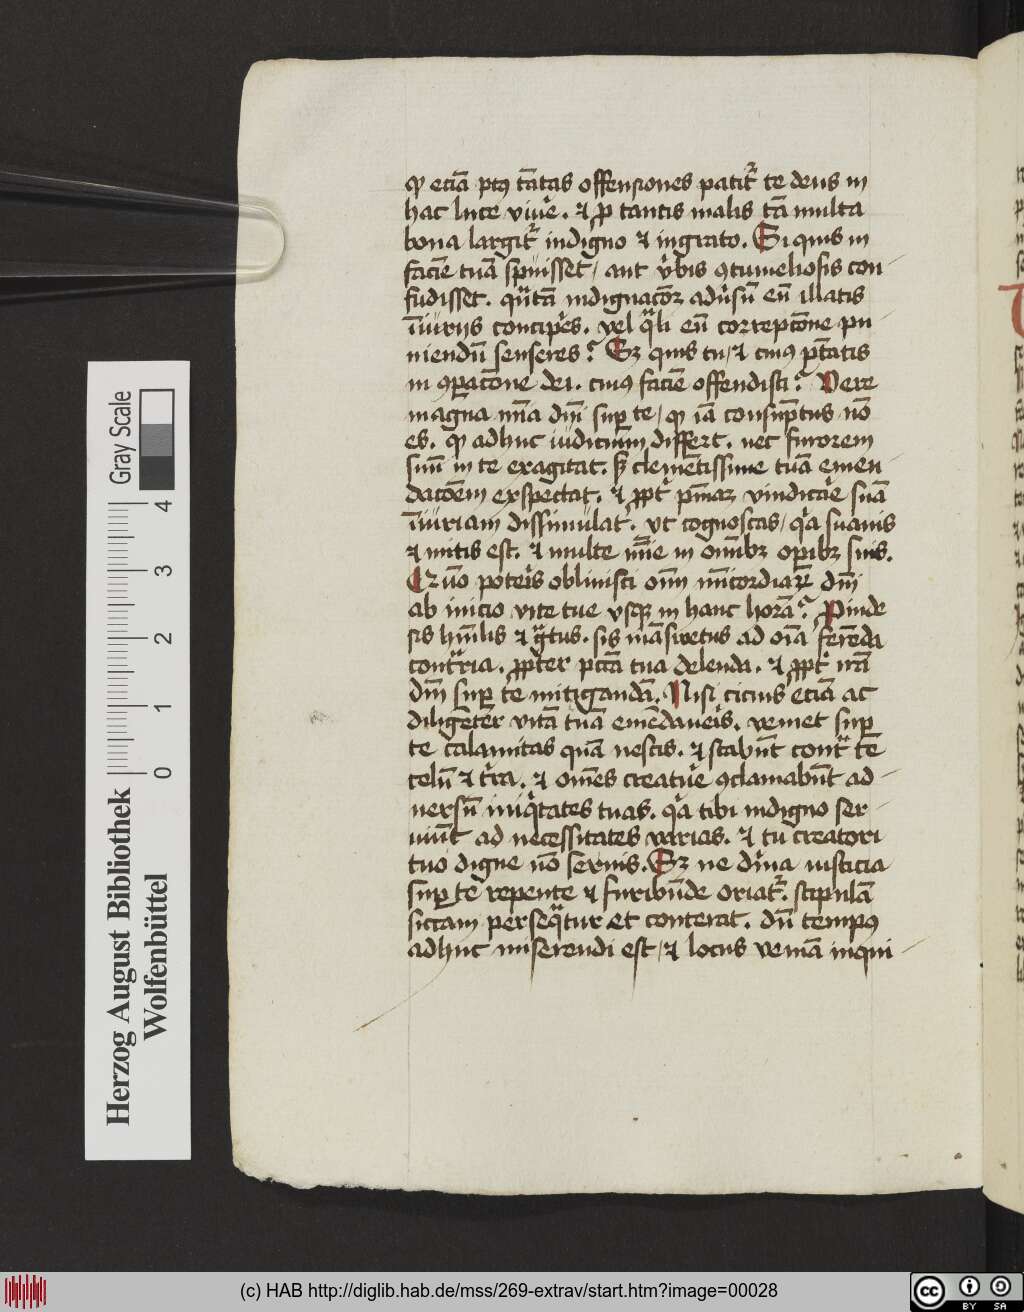 ꝙ eciā ptꝰ tātas offensiones patit᷑ te deus in
hac luce viuē̉. ⁊ ꝑ tantis malis tā multa
bona largit᷑ indigno ⁊ ingrato. Si quis in
faciē tuā spuisset / aut v̉bis ꝯtumeliosis con
fudisset. qͣntā indignacōꝫ adusū eū illatis
iniurijs concip̉es. vel qͣli eū correpcōne pu
niendū senseres? Sꝫ quis tu / ⁊ cuiꝰ p̄tatis
in ꝯparacōne dei. cuiꝰ faciē offendisti? Vere
magna mīa dnī suꝑ te / ꝙ iā consūptus nō
es. ꝙ adhuc iudicium differt. nec furorem
suū in te exagitat. sꝫ clemētissime tuā emen
dacōem exspectat. ⁊ ꝓpt̉ pm̄aꝫ vindictā̉e suā
iniuriam dissimulat. vt cognoscas / qͥa suauis
⁊ mitis est. ⁊ multe mīe in omībꝫ opibꝫ suis.
Qūo poteris obliuisci om̄ miīcordiaꝝ dnī
ab inicio vite tue vsqꝫ in hanc horā? Proinde
sis hūilis ⁊ gͣtus. sis māsuetus ad oīa ferēda
contͣria. ꝓpter pctā tua delenda. ⁊ ꝓpt̉ irā
dnī suꝑ te mitigandā. Nisi cicius eciā ac
diligēter vitā tuā emēdaueris. veniet suꝑ
te calamitas quā nescis. ⁊ stabūt contͣ te
celū ⁊ t̉ra. ⁊ omēs creatue̓ ꝯclamabūt ad
uersū iniqͥtates tuas. qͥa tibi indigno ser
uiūt ad necessitates varias. ⁊ tu creatori
tuo digne nō seruis. Sꝫ ne diīna iusticia
suꝑ te repente ⁊ furibūde oriat᷑. stipulā
siccam perseqͣtur et conterat. dū tempꝰ
adhuc miserendi est / ⁊ locus veniā inqui
Gray Scale
4
3
2
1
0
Herzog August Bibliothek
Wolfenbüttel
(c) HAB http://diglib.hab.de/mss/269-extrav/start.htm?image=00028
cc
BY SA